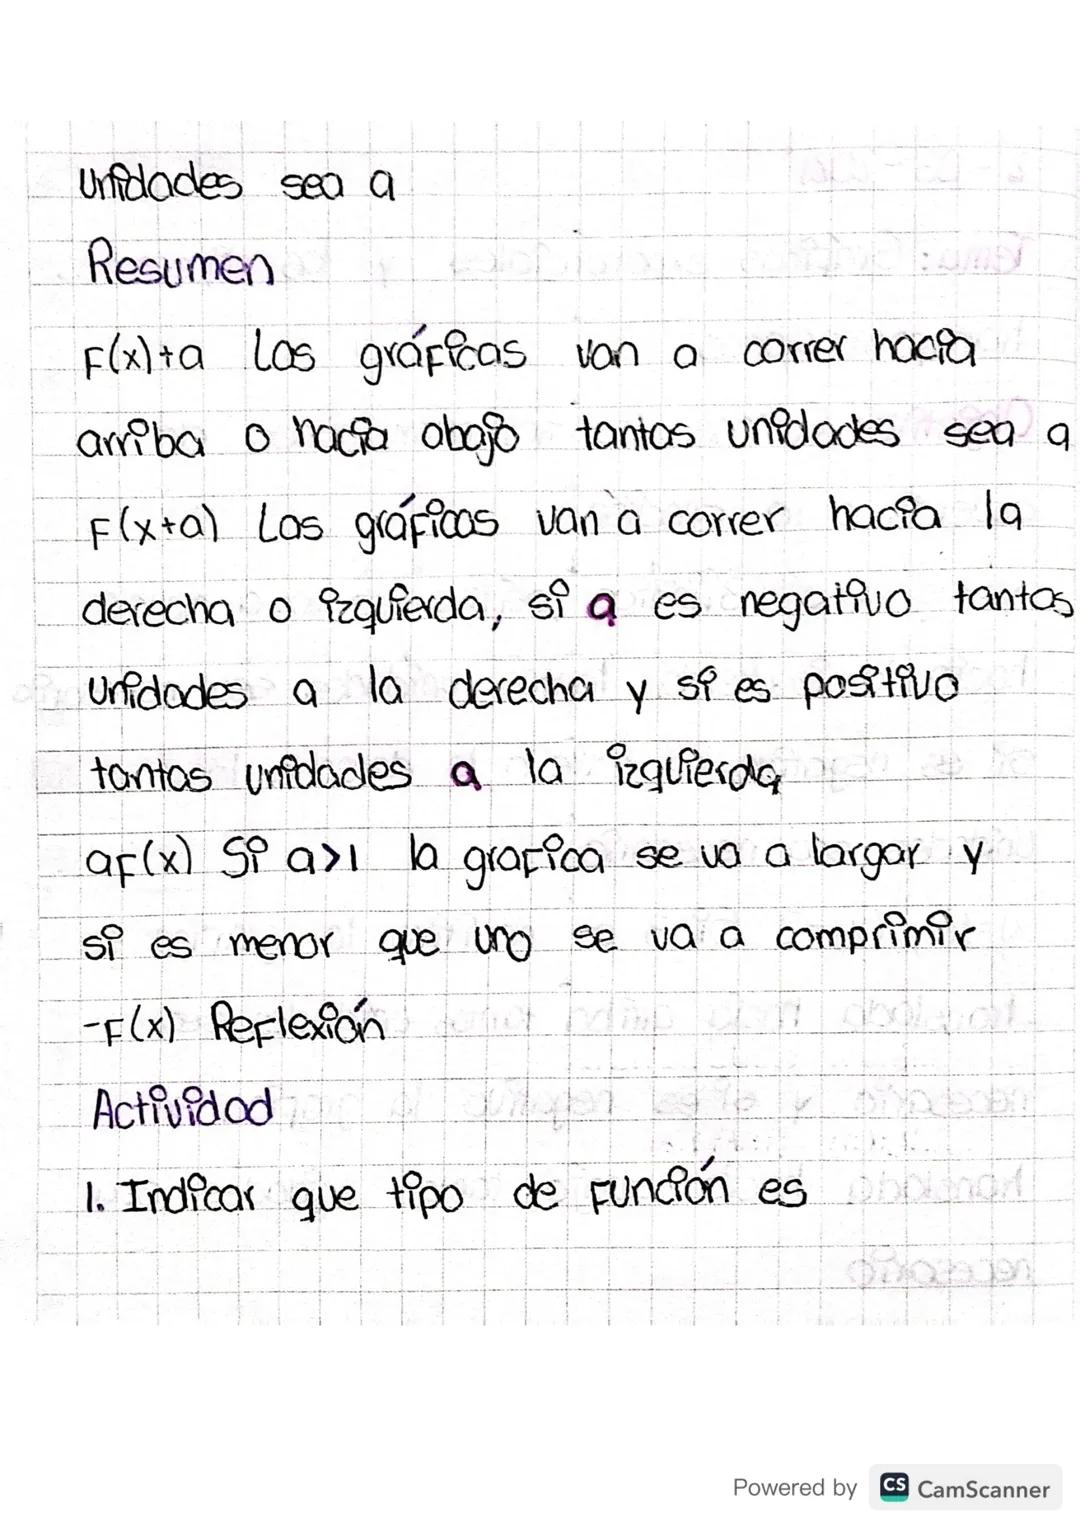 unidades sea a
Resumen
F(x)+a Las gráficas van a correr hacia
arriba o hacia abajo tantas unidades sea a
F(x+a) Las gráficas van a correr hacia la
derecha o izquierda, si a es negativo tantas
unidades a la derecha y si es positivo
tantas unidades a la izquierda
aF(x) Si a>1 la grafica se va a largar y
si es menor que uno se va a comprimir
-F(x) Reflexión
Actividad
1. Indicar que tipo de función es
Powered by CS CamScanner